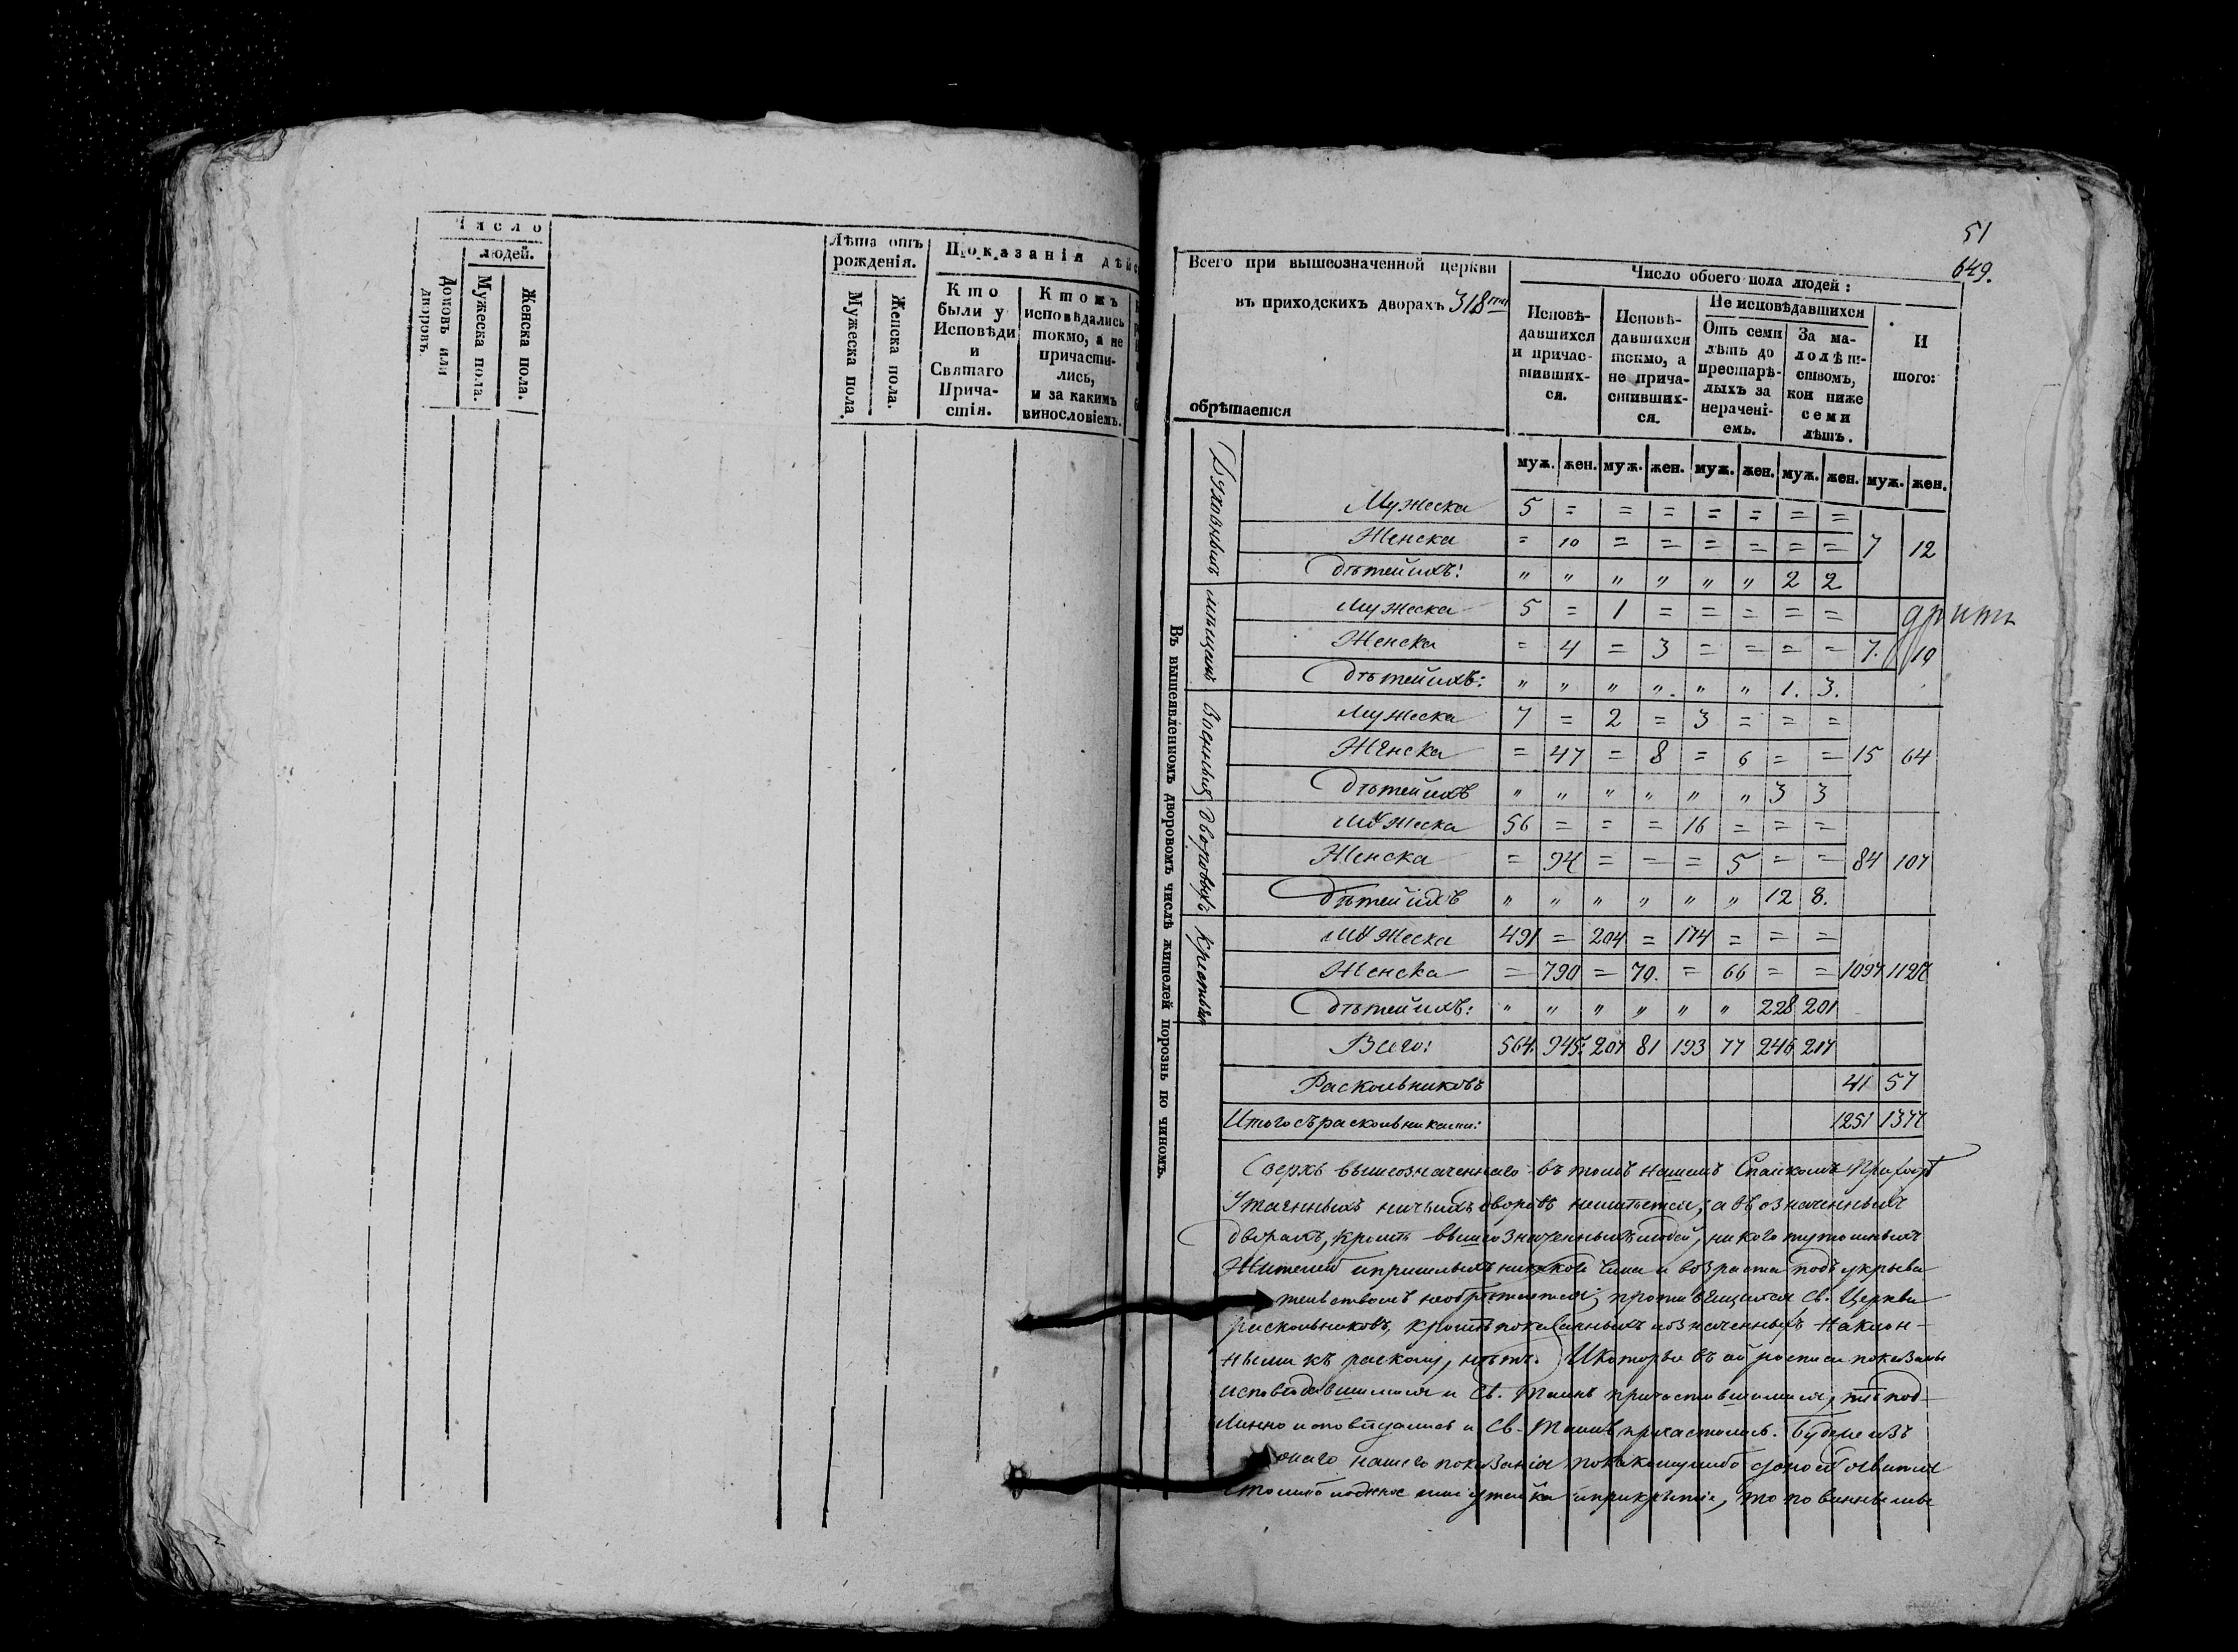 Число
людей.
Домовъ или дворовъ.
Мужеска пола.
Женска пола.
Лѣта отъ рожденія.
Мужеска пола.
Женска пола.
Показанія дѣйс
Кто были у Исповѣди и Святаго Причастія.
Ктожъ исповѣдались токмо, а не причастились, и за какимъ винословіемъ.
51
649.
Всего при вышеозначенной церкви
въ приходскихъ дворахъ 318
обрѣтается
Число обоего пола людей:
Исповѣдавшихся и причастившихся.
Исповѣдавшихся токмо, а не причастившихся.
Не исповѣдавшихся
Отъ семи лѣтъ до престарѣлыхъ за нераченіемъ.
За малолѣтствомъ, кои ниже семи лѣтъ.
И
того:
муж. жен. муж. жен. муж. жен. муж. жен. муж. жен.
Въ вышеявленномъ дворовомъ числѣ жителей порознь по чиномъ.
Духовныхъ
Мужеска 5 = = = = = = =
Женска = 10 = = = = = = 7 12
Дѣтей ихъ: " " " " " " 2 2
Мѣщанъ
Мужеска 5 = 1 = = = = =
Женска = 4 = 3 = = = = 7. 10
Дѣтей ихъ: " " " " " " 1. 3.
Военныхъ
Мужеска 7 = 2 = 3 = = =
Женска = 47 = 8 = 6 = = 15 64
Дѣтей ихъ " " " " " " 3 3
Дворовыхъ
Мужеска 56 = = = 16 = = =
Женска = 94 = = = 5 = = 84 107
Дѣтей ихъ " " " " " " 12 8.
Крестьянъ
Мужеска 491 = 204 = 174 = = =
Женска = 790 = 70. = 66 = = 1097 1127
Дѣтей ихъ: " " " " " " 228 201
Всего: 564. 945. 207 81 193 77 246 217
Раскольниковъ 41 57
Итого съ раскольниками: 1251 1377
Сверхъ вышеозначеннаго въ томъ нашемъ Спаскомъ приходѣ
Утаенныхъ ничьихъ дворовъ неимѣется, а въ означенныхъ
дворахъ, кромѣ вышеозначенныхъ людей, никого тутошныхъ
Жителей и пришлыхъ чина и возраста подъ укрыва
тельствомъ необрѣтается; противящихся Св. Церкви
раскольниковъ, кромѣ показанныхъ и означенныхъ наклон-
ными къ расколу, нѣтъ. И которые въ ей росписи показаны
исповѣдавшимися и Св. Таинъ причастившимися, тѣ под-
линно исповѣдались и Св. Таинъ причастились. Буде изъ
онаго нашего показанія по какому либо доносу явится
что либо ложное или утайка и прикрытіе, то повинны мы